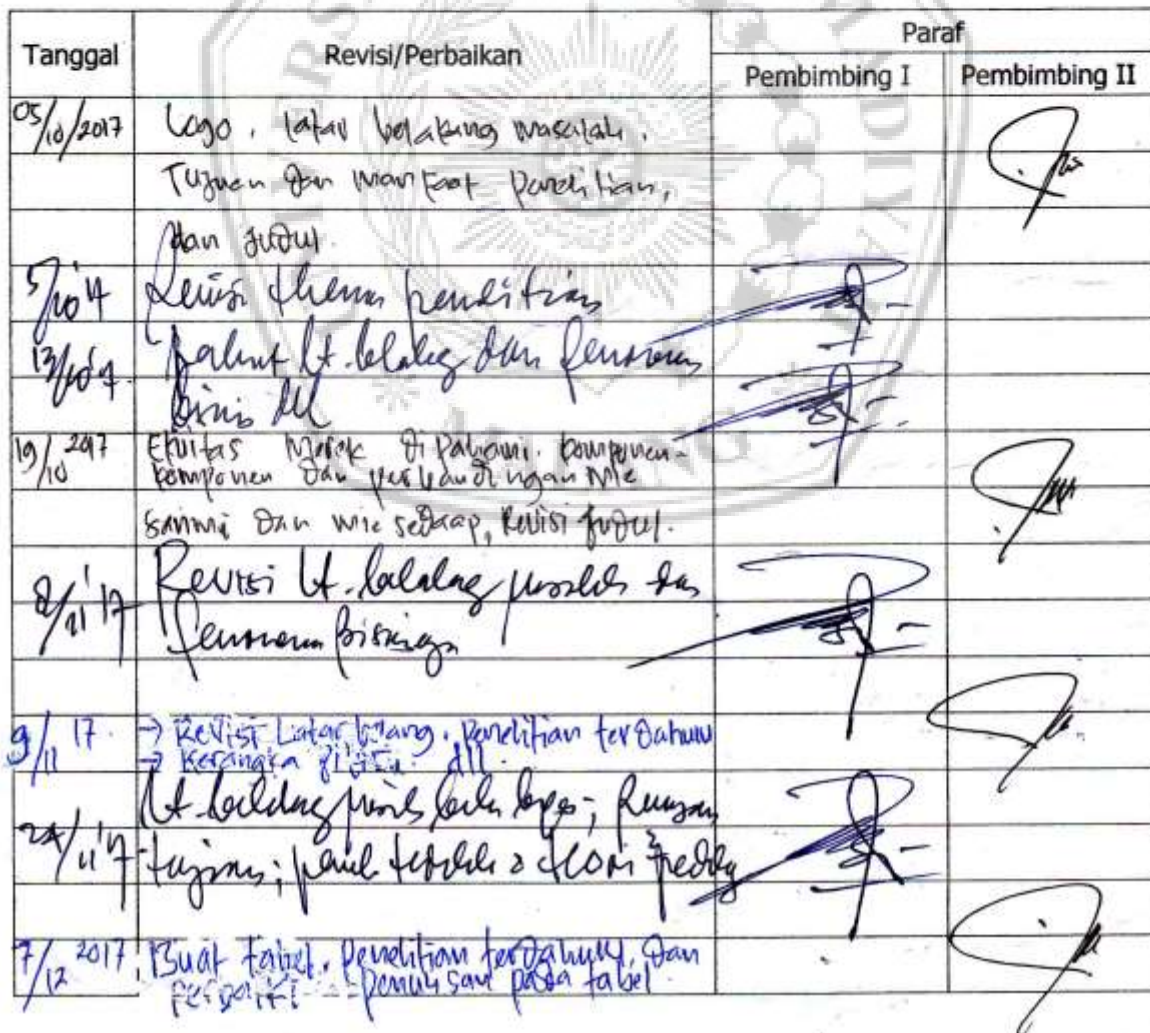 Tanggal Revisi/Perbaikan Paraf
Pembimbing I Pembimbing II
05/10/2017 Logo, latar belakang masalah,
Tujuan dan manfaat penelitian,
dan judul.
5/10'17 Revisi thema penelitian
13/10'17 lt. belakang dan fenomena
bisnis dll
19/10 2017 Ekuitas Merek dipahami. komponen-
komponen dan perbandingan mie
sarimi dan mie sedaap, Revisi judul.
8/11'17 Revisi lt. belakang masalah dan
fenomena bisnisnya
9/11 17. → Revisi Latar blang. Penelitian terdahulu
→ Kerangka dll.
24/11'17 lt. belakang
tujuan; teori
7/12 2017 Buat tabel. Penelitian terdahulu, dan
penulisan pada tabel